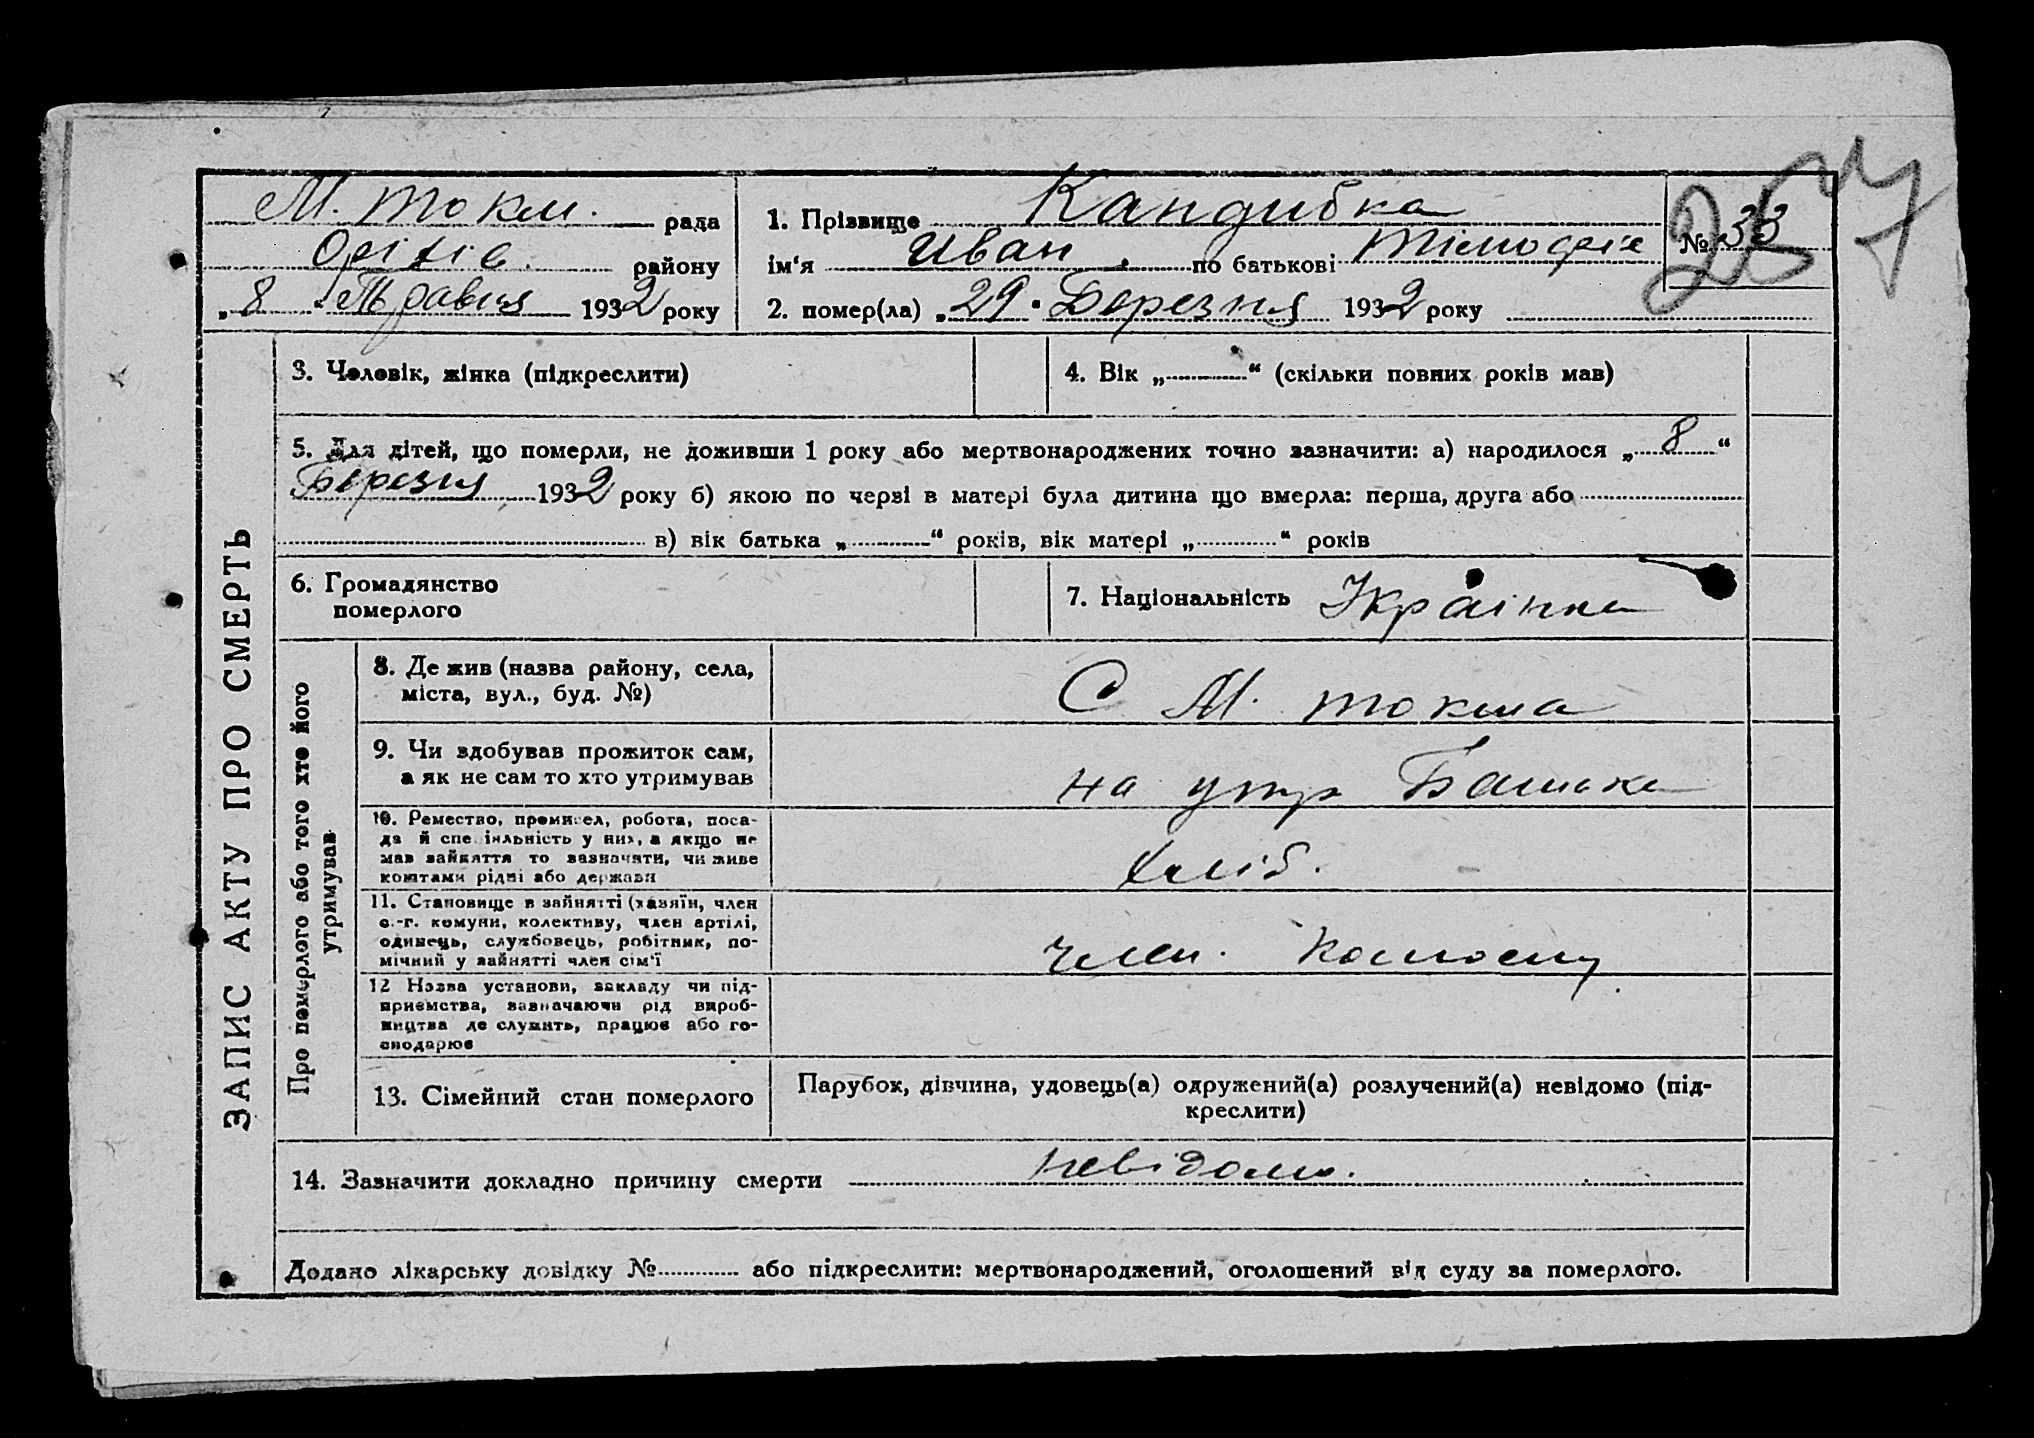 257
М. Токм. рада
Оріхів. району
„8“ Травня 1932 року
1. Прізвище Кандибка
ім'я Иван по батькові Тімофія
2. помер(ла) „29“ Березня 1932 року
№ 33
ЗАПИС АКТУ ПРО СМЕРТЬ
3. Чоловік, жінка (підкреслити)
4. Вік „ “ (скільки повних років мав)
5. Для дітей, що померли, не доживши 1 року або мертвонароджених точно зазначити: а) народилося „8“
Березня 1932 року б) якою по черзі в матері була дитина що вмерла: перша, друга або
в) вік батька „ “ років, вік матері „ “ років
6. Громадянство
померлого
7. Національність Українка
Про померлого або того хто його
утримував
8. Де жив (назва району, села,
міста, вул., буд. №)
С М. Токма
9. Чи здобував прожиток сам,
а як не сам то хто утримував
на утр Батька
10. Ремество, промисел, робота, поса-
да й спеціяльність у них, а якщо не
мав зайняття то зазначити, чи живе
коштами рідні або держави
хліб.
11. Становище в зайнятті (хазяїн, член
с.-г. комуни, колективу, член артілі,
одинець, службовець, робітник, по-
мічний у зайнятті член сім'ї
член. колгоспу
12 Назва установи, закладу чи під-
приємства, зазначаючи рід вироб-
ництва де служить, працює або го-
сподарює
13. Сімейний стан померлого
Парубок, дівчина, удовець(а) одружений(а) розлучений(а) невідомо (під-
креслити)
14. Зазначити докладно причину смерти невідомо.
Додано лікарську довідку № або підкреслити: мертвонароджений, оголошений від суду за померлого.